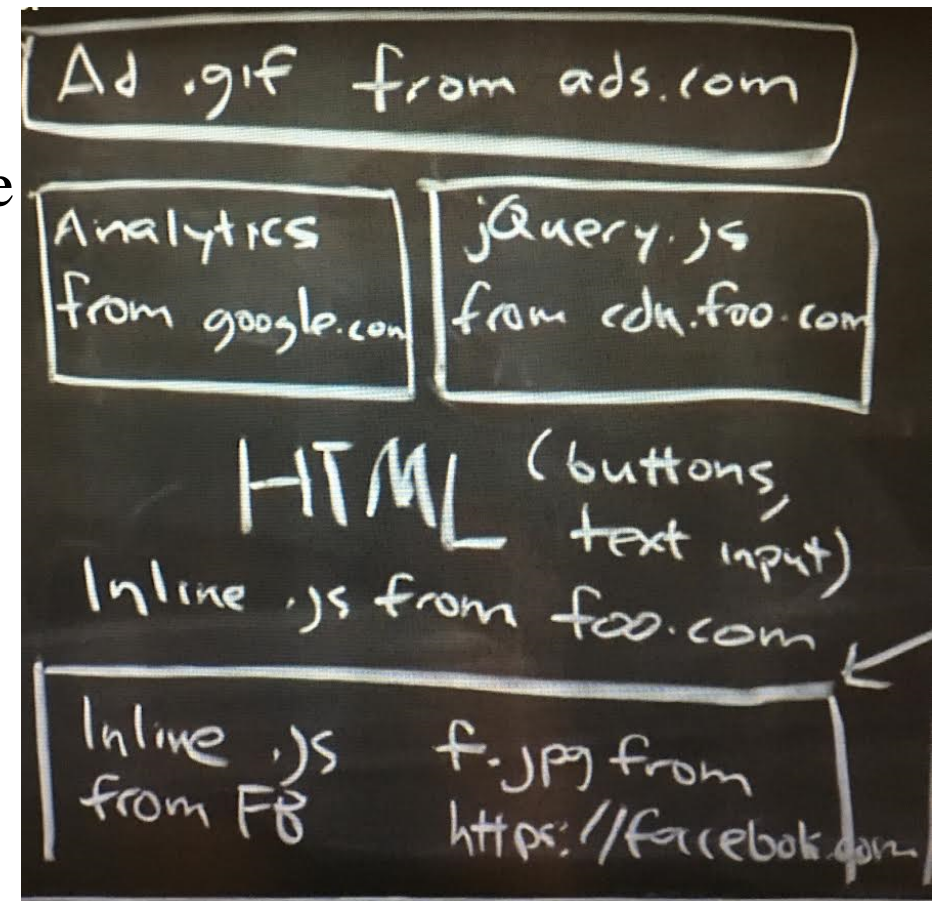 e
Ad .gif from ads.com
Analytics
from google.com
jQuery.js
from cdn.foo.com
HTML (buttons,
text input)
Inline .js from foo.com
Inline .js
from FB
f.jpg from
https://facebook.com